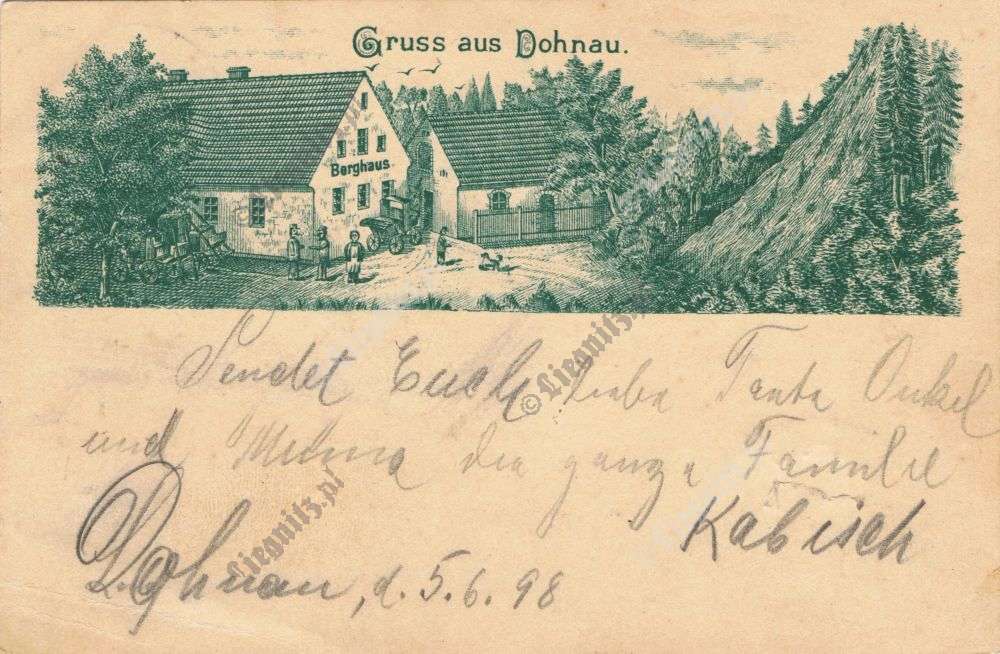 Gruss aus Dohnau.
Berghaus
Sendet Euch liebe Tante Onkel
und die ganze Familie
Kabisch
Dohnau, d. 5.6.98
© Liegnitz.pl
Liegnitz.pl